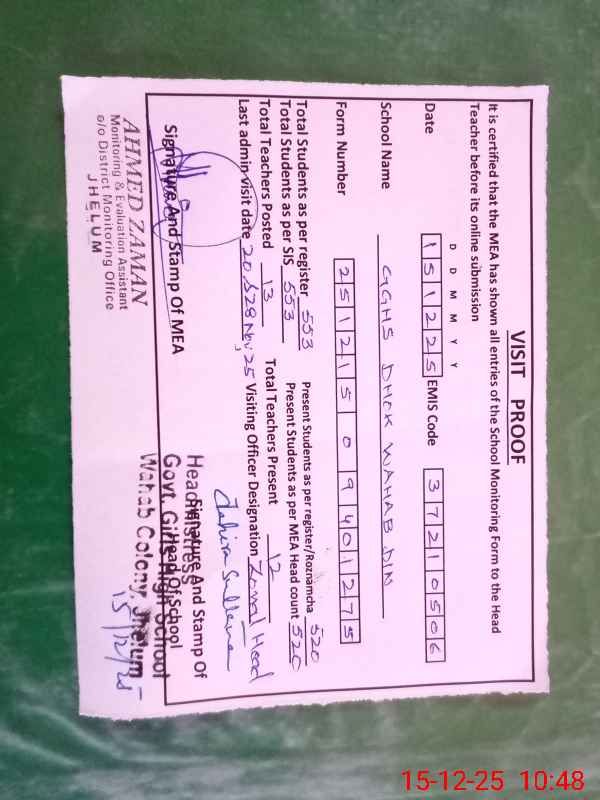 VISIT PROOF
It is certified that the MEA has shown all entries of the School Monitoring Form to the Head
Teacher before its online submission
D D M M Y Y
Date 151225 EMIS Code 37210506
School Name GGHS DHOK WAHAB DIN
Form Number 25121509401275
Total Students as per register 553 Present Students as per register/Roznamcha 520
Total Students as per SIS 553 Present Students as per MEA Head count 520
Total Teachers Posted 13 Total Teachers Present 12
Last admin visit date 20 &28 Nov, 25 Visiting Officer Designation Zonal Head
Signature And Stamp Of MEA
Signature And Stamp Of
Head Of School
AHMED ZAMAN
Monitoring & Evaluation Assistant
o/o District Monitoring Office
JHELUM
Headmistress
Govt. Girls High School
Wahab Colony, Jhelum
15/12/25
15-12-25 10:48